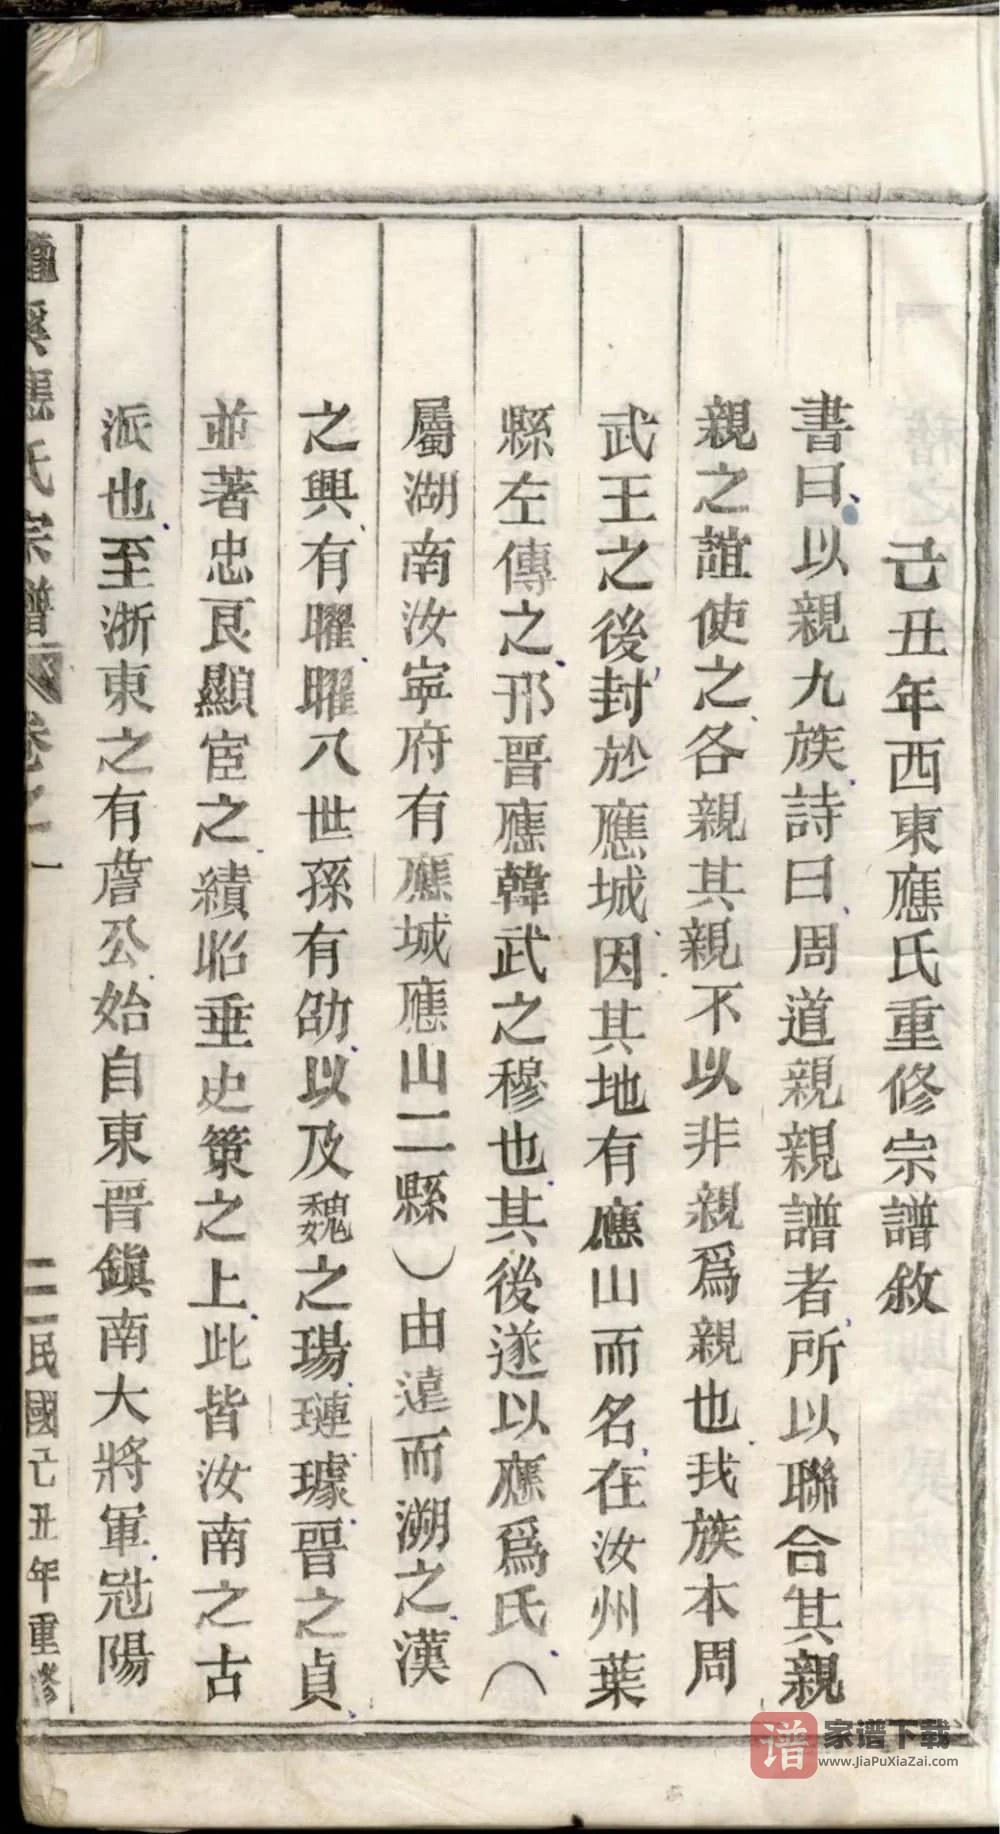 己丑年西東應氏重修宗譜敘
書曰以親九族詩曰周道親親譜者所以聯合其親
親之誼使之各親其親不以非親爲親也我族本周
武王之後封於應城因其地有應山而名在汝州葉
縣左傳之邘晋應韓武之穆也其後遂以應爲氏（
屬湖南汝寧府有應城應山二縣）由遠而溯之漢
之興有曜曜八世孫有劭以及魏之瑒璉璩晋之貞
並著忠良顯宦之績昭垂史策之上此皆汝南之古
派也至浙東之有詹公始自東晋鎮南大將軍冠陽
溪應氏宗譜 卷之一 二 民國己丑年重修
谱 家谱下载
www.JiaPuXiaZai.com